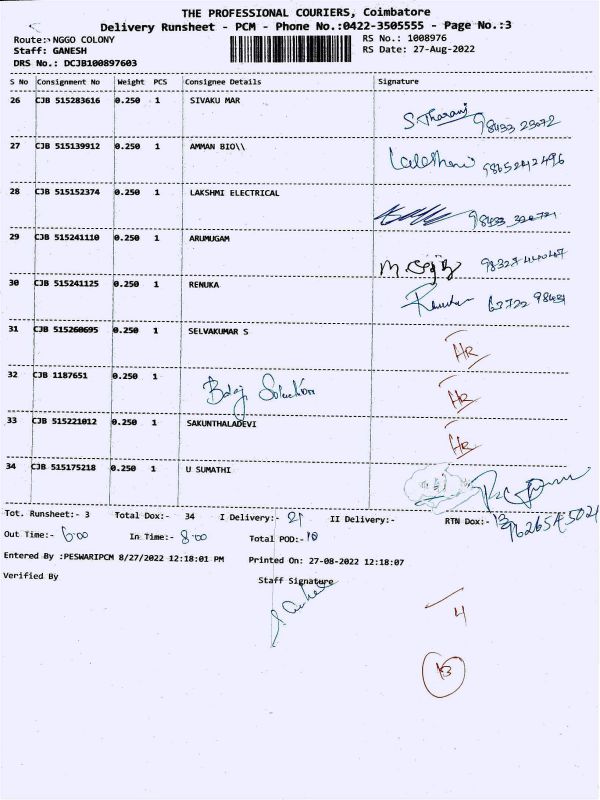 THE PROFESSIONAL COURIERS, Coimbatore
Delivery Runsheet - PCM - Phone No.:0422-3505555 - Page No.:3
Route:- NGGO COLONY RS No.: 1008976
Staff: GANESH RS Date: 27-Aug-2022
DRS No.: DCJB100897603
S No Consignment No Weight PCS Consignee Details Signature
26 CJB 515283616 0.250 1 SIVAKU MAR
27 CJB 515139912 0.250 1 AMMAN BIO\\
28 CJB 515152374 0.250 1 LAKSHMI ELECTRICAL
29 CJB 515241110 0.250 1 ARUMUGAM
30 CJB 515241125 0.250 1 RENUKA
31 CJB 515260695 0.250 1 SELVAKUMAR S HR
32 CJB 1187651 0.250 1 HR
33 CJB 515221012 0.250 1 SAKUNTHALADEVI HR
34 CJB 515175218 0.250 1 U SUMATHI
Tot. Runsheet:- 3 Total Dox:- 34 I Delivery:- 21 II Delivery:- RTN Dox:- 13
Out Time:- 6:00 In Time:- 8:00 Total POD:- 10
Entered By :PESWARIPCM 8/27/2022 12:18:01 PM Printed On: 27-08-2022 12:18:07
Verified By Staff Signature
4
13